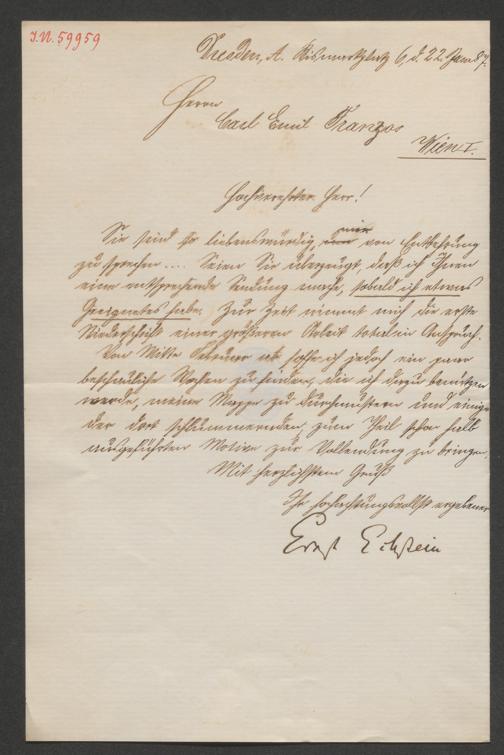 I.N. 59959
Dresden, A. Bismarckplatz 6, d. 22. Jan. 87.
Herrn
Carl Emil Franzos
Wien I.
Hochverehrter Herr!
Sie sind so liebenswürdig, mir von Entbehrung
zu sprechen .... Seien Sie überzeugt, daß ich Ihnen
eine entsprechende Sendung mache, sobald ich etwas
Geeignetes habe. Zur Zeit nimmt mich die erste
Niederschrift einer größeren Arbeit total in Anspruch.
Von Mitte Februar ab hoffe ich jedoch ein paar
beschauliche Wochen zu finden, die ich dazu benutzen
werde, meine Mappe zu durchmustern und einige
der dort schlummernden, zum Theil schon halb
ausgeführten Motive zur Vollendung zu bringen.
Mit herzlichstem Gruß
Ihr hochachtungsvollst ergebener
Ernst Eckstein